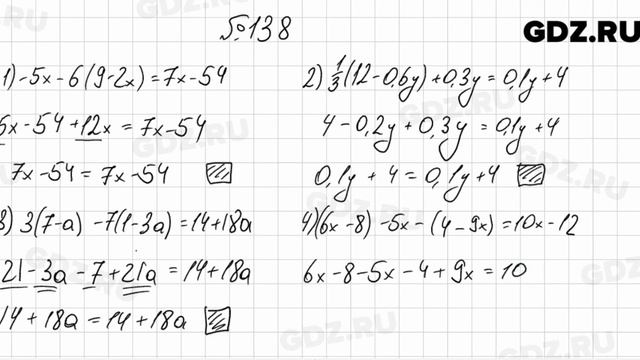 №138
GDZ.RU
1) -5x - 6(9-2x) = 7x - 54
5x - 54 + 12x = 7x - 54
7x - 54 = 7x - 54
2) 1/3(12-0,6y) + 0,3y = 0,1y + 4
4 - 0,2y + 0,3y = 0,1y + 4
0,1y + 4 = 0,1y + 4
3) 3(7-a) - 7(1-3a) = 14 + 18a
21 - 3a - 7 + 21a = 14 + 18a
14 + 18a = 14 + 18a
4) (6x - 8) - 5x - (4 - 9x) = 10x - 12
6x - 8 - 5x - 4 + 9x = 10